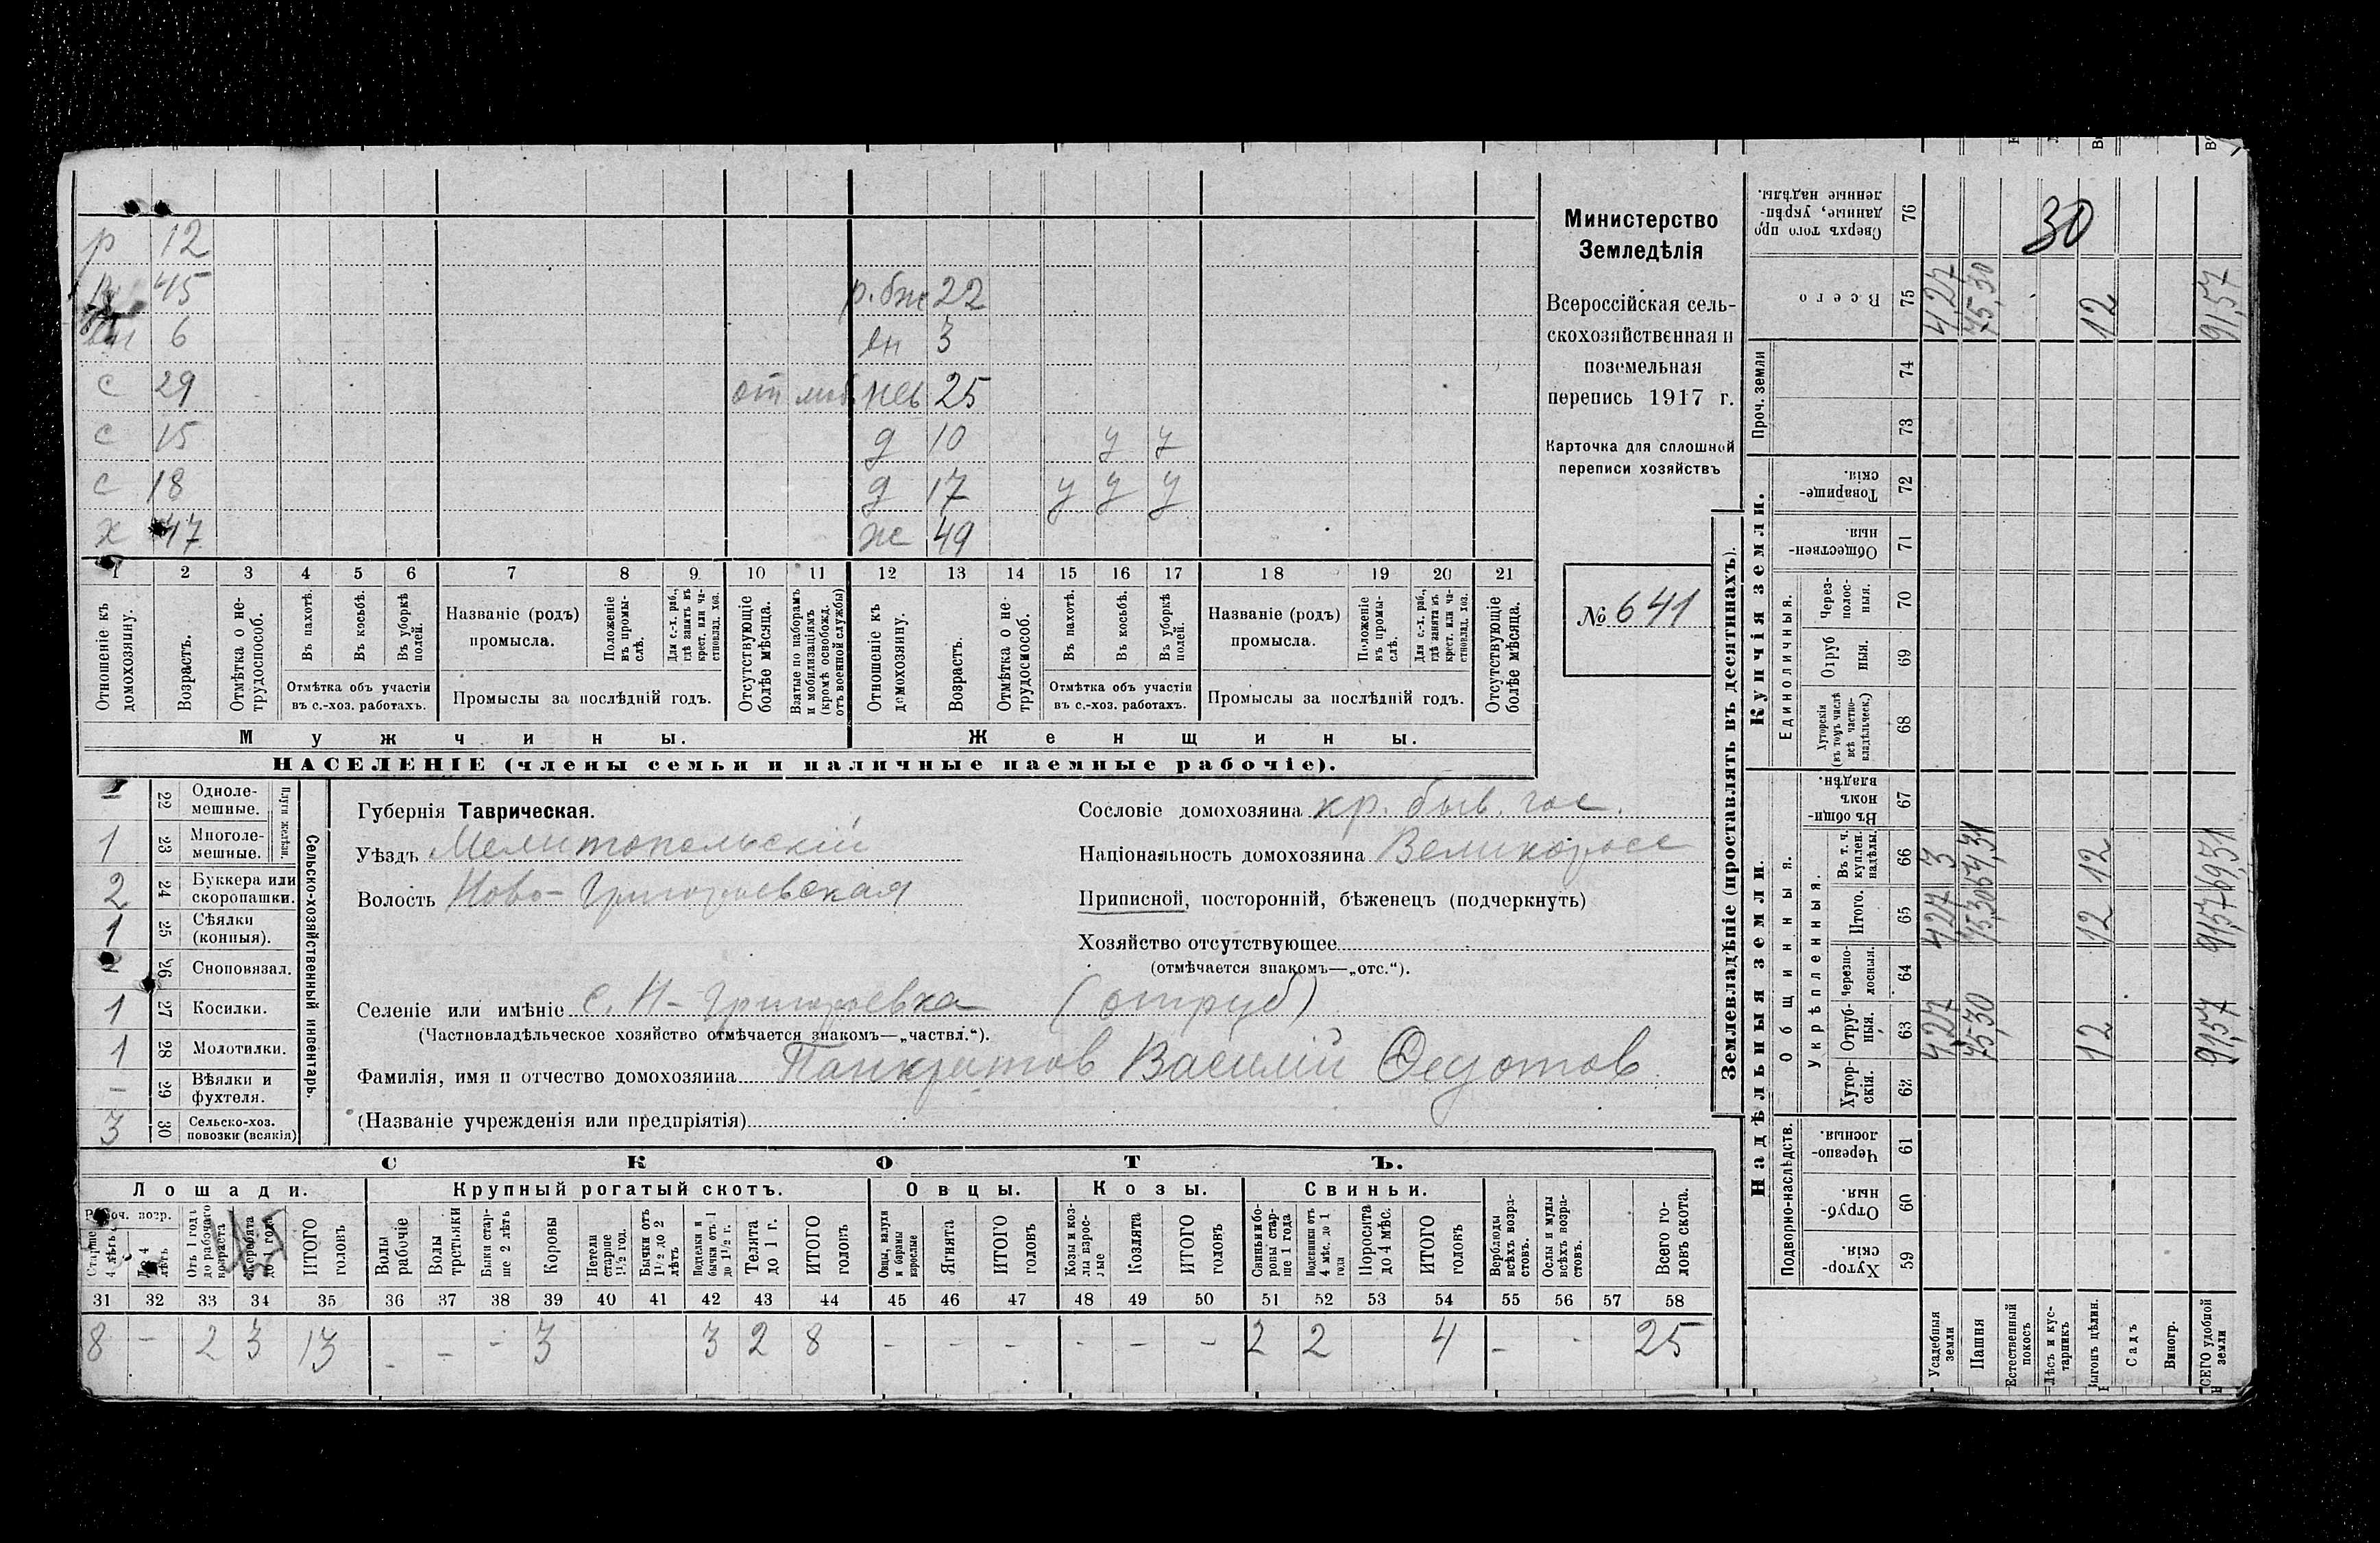 р 12
45 р. бж 22
6 вн 3
с 29 от моб нев 25
с 15 д 10 у у
с 18 д 17 у у у
х 47 ж 49
1 2 3 4 5 6 7 8 9 10 11 12 13 14 15 16 17 18 19 20 21
Отношеніе къ домохозяину.
Возрастъ.
Отмѣтка о нетрудоспособ.
Въ пахотѣ.
Въ косьбѣ.
Въ уборкѣ полей.
Отмѣтка объ участіи въ с.-хоз. работахъ.
Названіе (родъ) промысла.
Положеніе въ промыслѣ.
Для с.-х. раб., гдѣ занятъ въ крест. или частновлад. хоз.
Промыслы за послѣдній годъ.
Отсутствующіе болѣе мѣсяца.
Взятые по наборамъ и мобилизаціямъ (кромѣ освобожд. отъ военной службы)
Отношеніе къ домохозяину.
Возрастъ.
Отмѣтка о нетрудоспособ.
Въ пахотѣ.
Въ косьбѣ.
Въ уборкѣ полей.
Отмѣтка объ участіи въ с.-хоз. работахъ.
Названіе (родъ) промысла.
Положеніе въ промыслѣ.
Для с.-х. раб., гдѣ занята въ крест. или частновлад. хоз.
Промыслы за послѣдній годъ.
Отсутствующіе болѣе мѣсяца.
Мужчины. Женщины.
НАСЕЛЕНІЕ (члены семьи и наличные наемные рабочіе).
Министерство
Земледѣлія
Всероссійская сель-
скохозяйственная и
поземельная
перепись 1917 г.
Карточка для сплошной
переписи хозяйствъ
№ 641
22 Однолемешные.
Плуги желѣзн.
1 23 Многолемешные.
2 24 Буккера или скоропашки.
1 25 Сѣялки (конныя).
- 26 Сноповязал.
1 27 Косилки.
1 28 Молотилки.
- 29 Вѣялки и фухтеля.
3 30 Сельско-хоз. повозки (всякія)
Сельско-хозяйственный инвентарь.
Губернія Таврическая.
Уѣздъ Мелитопольскій
Волость Ново-Григорьевская
Сословіе домохозяина кр. быв. гос.
Національность домохозяина Великоросс
Приписной, посторонній, бѣженецъ (подчеркнуть)
Хозяйство отсутствующее
(отмѣчается знакомъ—„отс.“).
Селеніе или имѣніе с. Н-Григорьевка (отруб)
(Частновладѣльческое хозяйство отмѣчается знакомъ—„частвл.“).
Фамилія, имя и отчество домохозяина Панкратов Василій Федотов
(Названіе учрежденія или предпріятія)
СКОТЪ.
Лошади. Крупный рогатый скотъ. Овцы. Козы. Свиньи.
Рабоч. возр.
Старше 4 лѣтъ
До 4 лѣтъ
Отъ 1 года до рабочаго возраста
Жеребята до 1 года
ИТОГО головъ
Волы рабочіе
Волы тростяки
Быки старше 2 лѣтъ
Коровы
Нетели старше 1½ год.
Бычки отъ 1½ до 2 лѣтъ
Подтелки и бычки отъ 1 до 1½ г.
Телята до 1 г.
ИТОГО головъ
Овцы, валухи и бараны взрослые
Ягнята
ИТОГО головъ
Козы и козлы взрослые
Козлята
ИТОГО головъ
Свиньи и боровы старше 1 года
Подсвинки отъ 4 мѣс. до 1 года
Поросята до 4 мѣс.
ИТОГО головъ
Верблюды всѣхъ возрастовъ.
Ослы и мулы всѣхъ возрастовъ.
Всего головъ скота.
31 32 33 34 35 36 37 38 39 40 41 42 43 44 45 46 47 48 49 50 51 52 53 54 55 56 57 58
8 - 2 3 13 - - - 3 3 2 8 - - - - - - 2 2 4 - - 25
Землевладѣніе (проставлять въ десятинахъ).
Сверхъ того проданные, укрѣпленные надѣлы. 76
30
Всего 75 4,27 75,30 12 91,57
Проч. земли 74
73
Купчія земли.
Товарищескія. 72
Общественныя. 71
Единоличныя.
Черезполосныя. 70
Отрубныя. 69
Хуторскія (въ томъ числѣ всѣ частновладѣльческ.) 68
Надѣльныя земли.
Общинныя.
Въ общинномъ владѣн. 67
Укрѣпленныя.
Въ т. ч. куплен. надѣлы. 66 3 54,31 12 69,31
Итого. 65 4,27 75,30 12 91,57
Черезполосныя. 64
Отрубныя. 63 4,27 75,30 12 91,57
Хуторскія. 62
Подворно-наслѣдств.
Черезполосныя. 61
Отрубныя. 60
Хуторскія. 59
Усадебныя земли
Пашня
Естественный покосъ
Лѣсъ и кустарникъ
Выгонъ цѣлин.
Садъ
Виногр.
ВСЕГО удобной земли